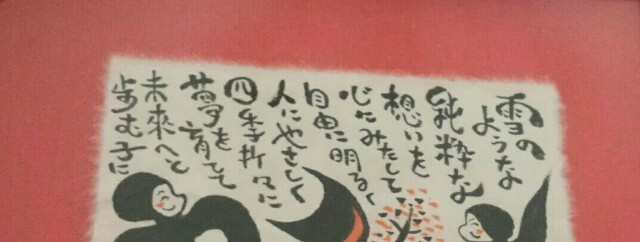 雪の
ような
純粋な
想いを
心にみたして
自由に明るく
人にやさしく
四季折々に
夢を育てて
未来へと
歩む子に